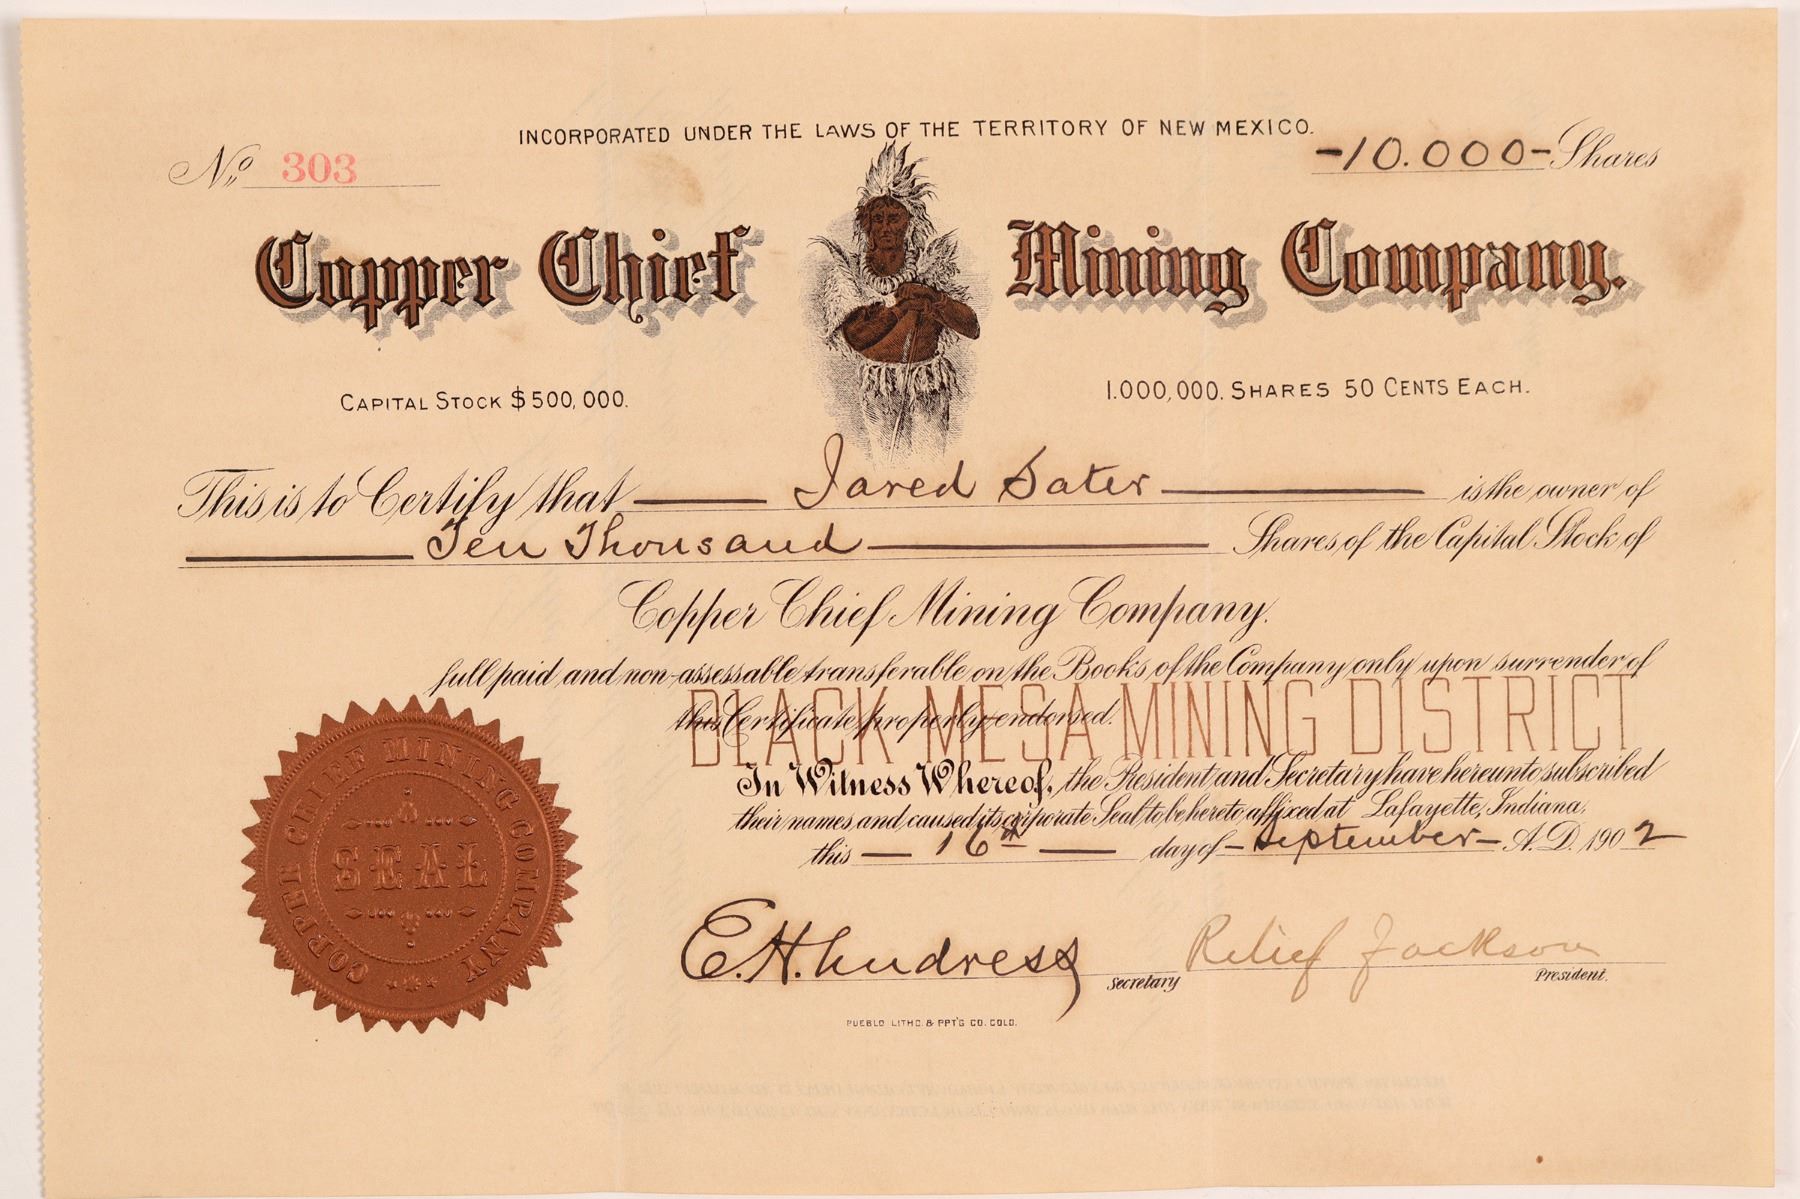 INCORPORATED UNDER THE LAWS OF THE TERRITORY OF NEW MEXICO.
No. 303
-10.000- Shares
Copper Chief Mining Company.
CAPITAL STOCK $500,000.
1.000,000. SHARES 50 CENTS EACH.
This is to Certify that Jared Sater is the owner of
Ten Thousand Shares of the Capital Stock of
Copper Chief Mining Company.
full paid and non-assessable transferable on the Books of the Company only upon surrender of
this Certificate properly endorsed.
BLACK MESA MINING DISTRICT
In Witness Whereof, the President and Secretary have hereunto subscribed
their names and caused its corporate Seal to be hereto affixed at Lafayette, Indiana,
this 16th day of September A.D. 1902
COPPER CHIEF MINING COMPANY
SEAL
E.H. Andress Secretary Relief Jackson President.
PUEBLO LITHO. & PPT'G CO. COLO.